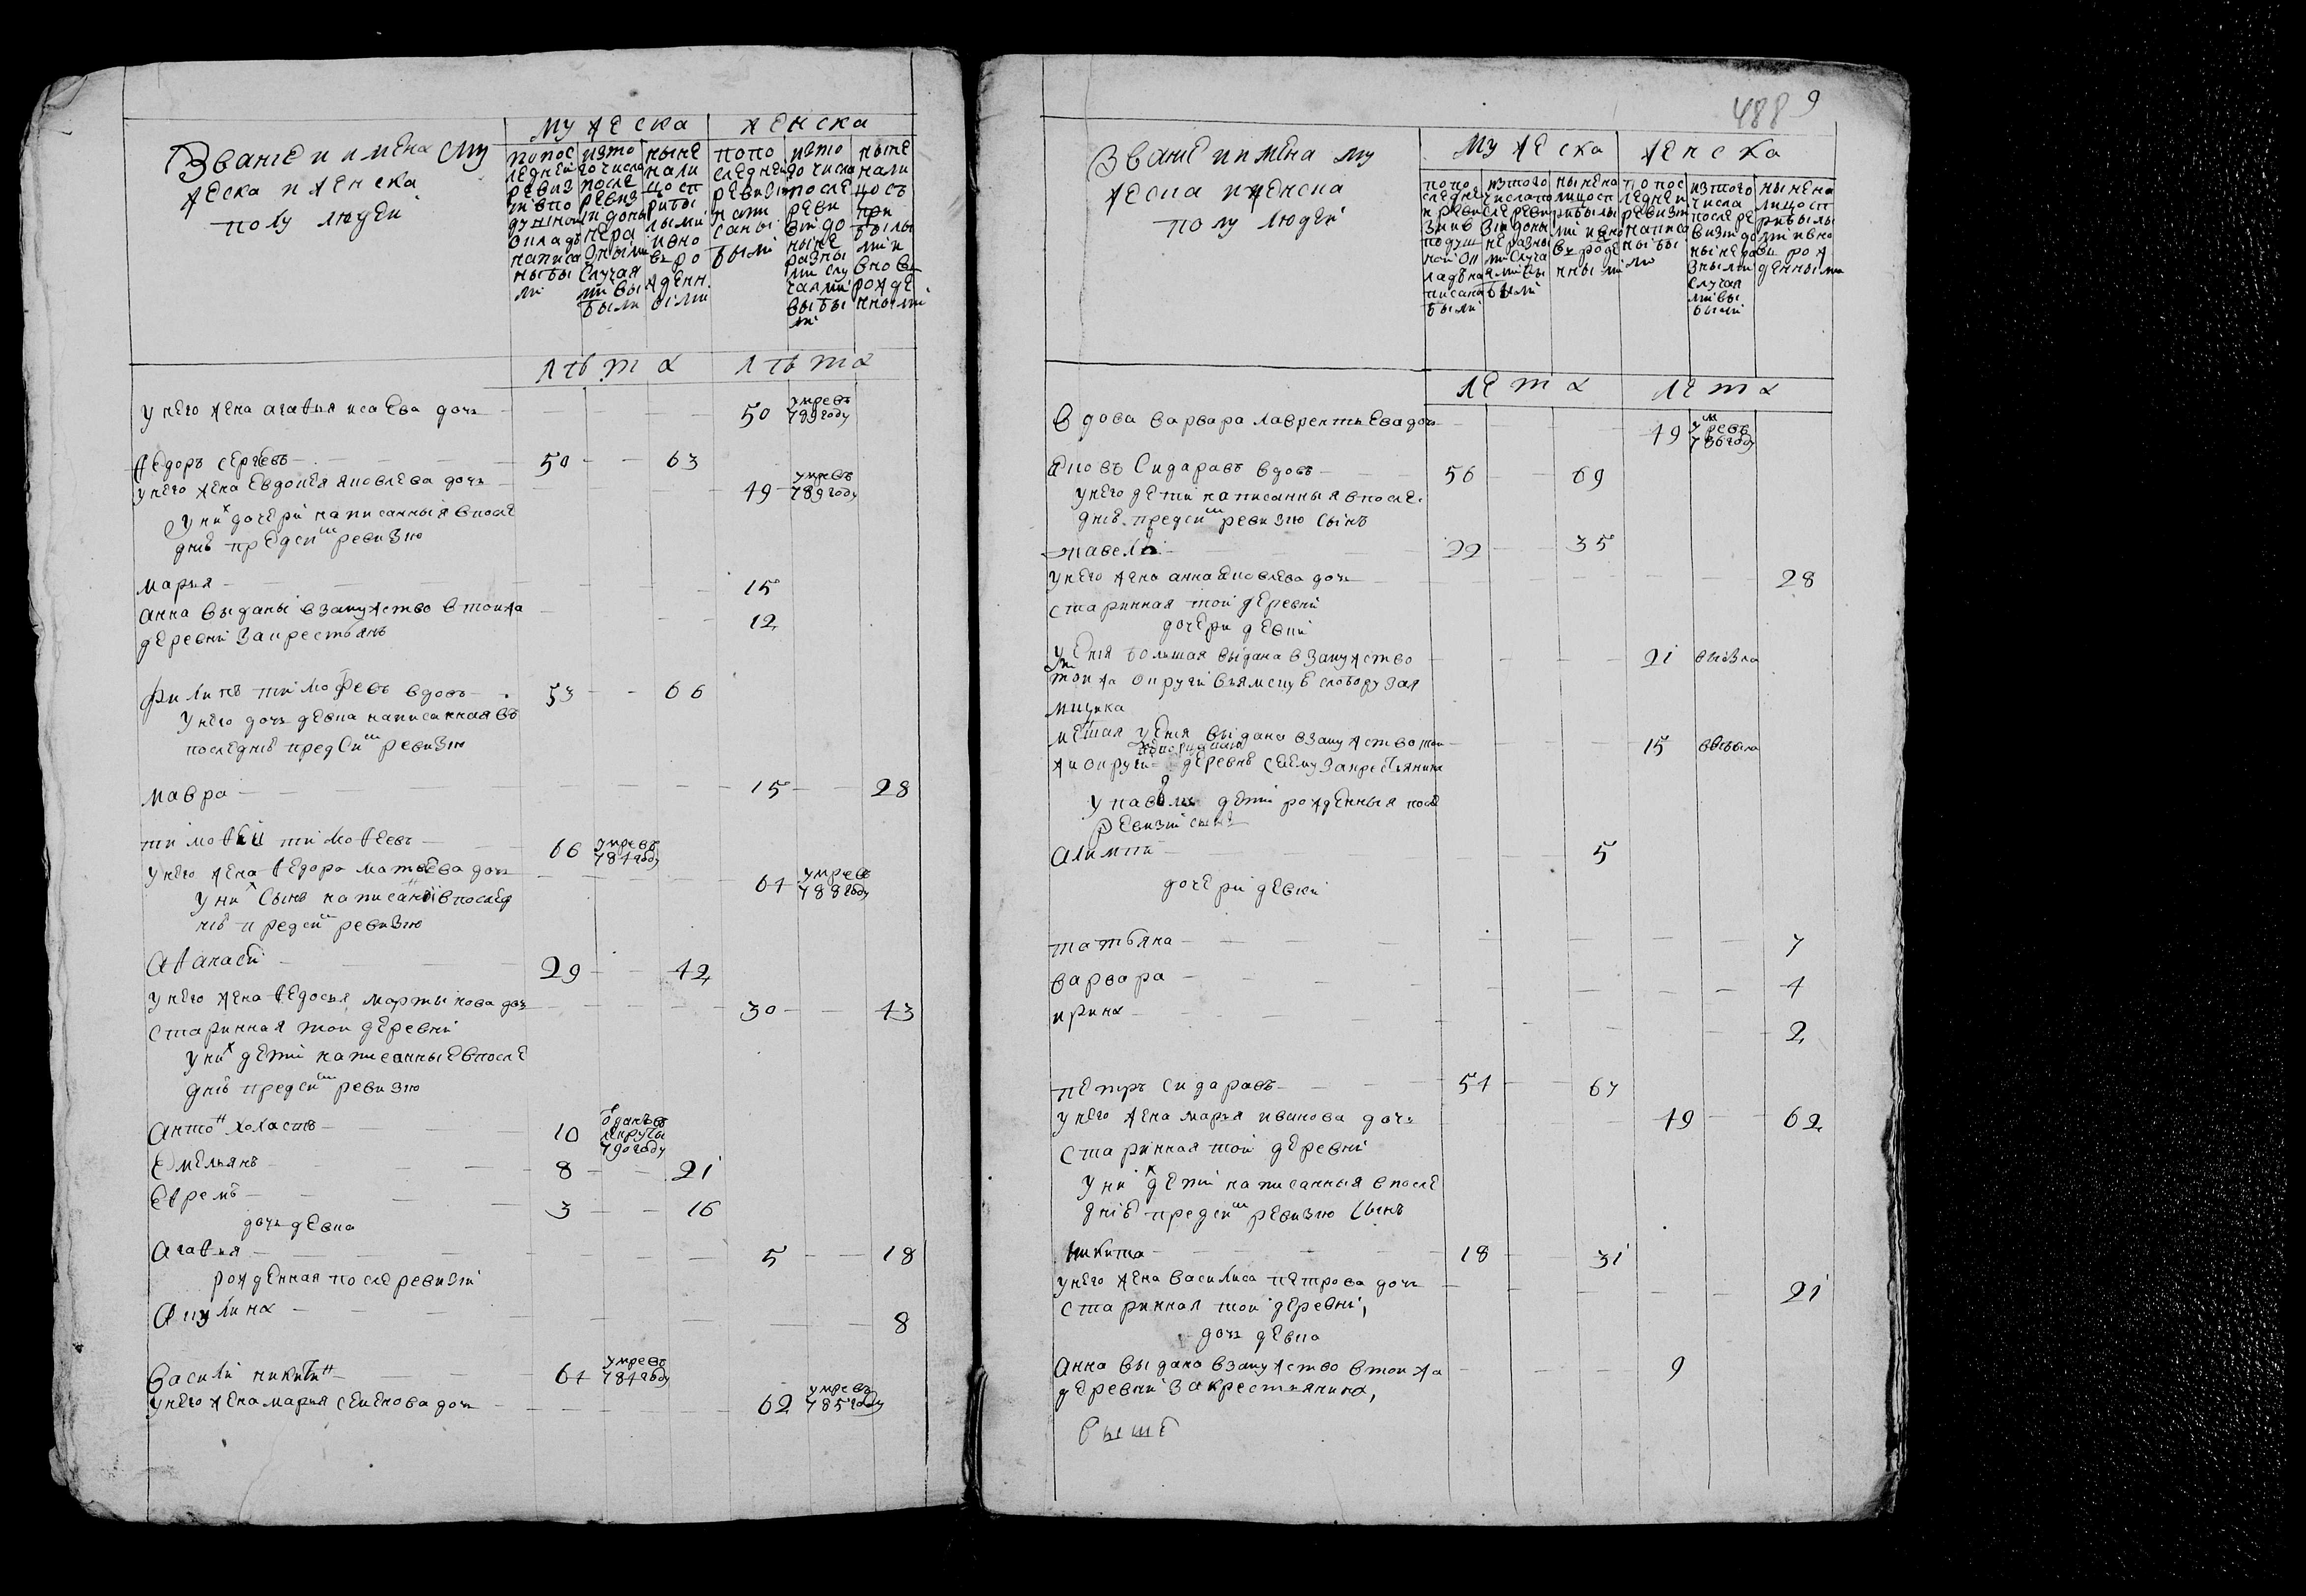 Звание и имена му
жеска и женска
полу людей
мужеска
женска
по пос
ледней
ревиз
ии в по
душной
оклад
написа
ны бы
ли
из то
го числа
после
ревиз
ии до ны
не ра
зными
случая
ми вы
были
ныне
нали
цо сп
рибы
лыми
и вно
вь ро
жденн
ыми
по по
следней
ревизии
напи
саны
были
из то
го числа
после
реви
зии до
ныне
разны
ми слу
чаями
выбы
ли
ныне
нали
цо съ
при
былы
ми и
вновь
рожде
нными
лѣта
лѣта
у него жена агафья исаева дочь 50 умре въ 789 году
Ѳедоръ сергѣевъ 50 63
у него жена Евдокея яковлева дочь 49 умре въ 789 году
у них дочери написанныя в после
днѣ пред сей ревизию
марья 15
анна выданы в замужство в той жа 12
деревни за крестьянъ
филипъ тимофѣевъ вдовъ 53 66
у него дочь девка написанная въ
последнѣ пред сей ревизию
мавра 15 28
тимоѳей тимоѳеевъ 66 умре въ 784 году
у него жена ѳедора матвѣева дочь 64 умре в 788 году
у них сынъ написанъ в послед
нѣ пред сей ревизию
Аѳанасей 29 42
у него жена ѳедосья мартынова дочь 30 43
старинная той деревни
у них дети написанные в после
днѣ пред сей ревизию
Антон холостъ 10 отданъ въ рекруты 790 году
Емельянъ 8 21
Ефремъ 3 16
дочь девка
Агаѳья 5 18
рожденная после ревизии
Акулина 8
Василей никитин 64 умре въ 784 году
у него жена марья семенова дочь 62 умре въ 785 году
488 9
Звание и имена му
жеска и женска
полу людей
мужеска
женска
по по
следне
и реви
зии в
подуш
ной ок
ладе на
писаны
были
из того
числа по
сле реви
зии до ны
не разны
ми случа
ями вы
были
ныне на
лицо сп
рибылы
ми и вно
вь рожде
нными
по пос
ледней
ревизи
написа
ны бы
ли
из того
числа
после ре
визии до
ныне ра
зными
случая
ми вы
были
ныне на
лицо сп
рибылы
ми и вно
вь рож
денными
лета
лета
вдова варвара лаврентьева дочь 49 умре въ 786 году
Яковъ Сидаравъ вдовъ 56 69
у него дети написанныя в после
днѣ пред сей ревизию сынъ
павелъ 22 35
у него жена анна яковлева дочь 28
старинная той деревни
дочери девки
большая выдана в замужство 21 выбыла
той жа округи в ямскую слободу за я
мщика
меншая выдана в замужство той 15 выбыла
жа округи деревне за крестьянина
у павла дети рожденныя после
ревизии сынъ
Алимпи 5
дочери девки
татьяна 7
варвара 4
ирина 2
петръ сидаравъ 54 67
у него жена марья иванова дочь 49 62
старинная той деревни
у них дети написанныя в после
днѣ пред сей ревизию сынъ
никита 18 31
у него жена василиса петрова дочь 21
старинная той деревни,
дочь девка
Анна выдана в замужство в той жа 9
деревни за крестьянина,